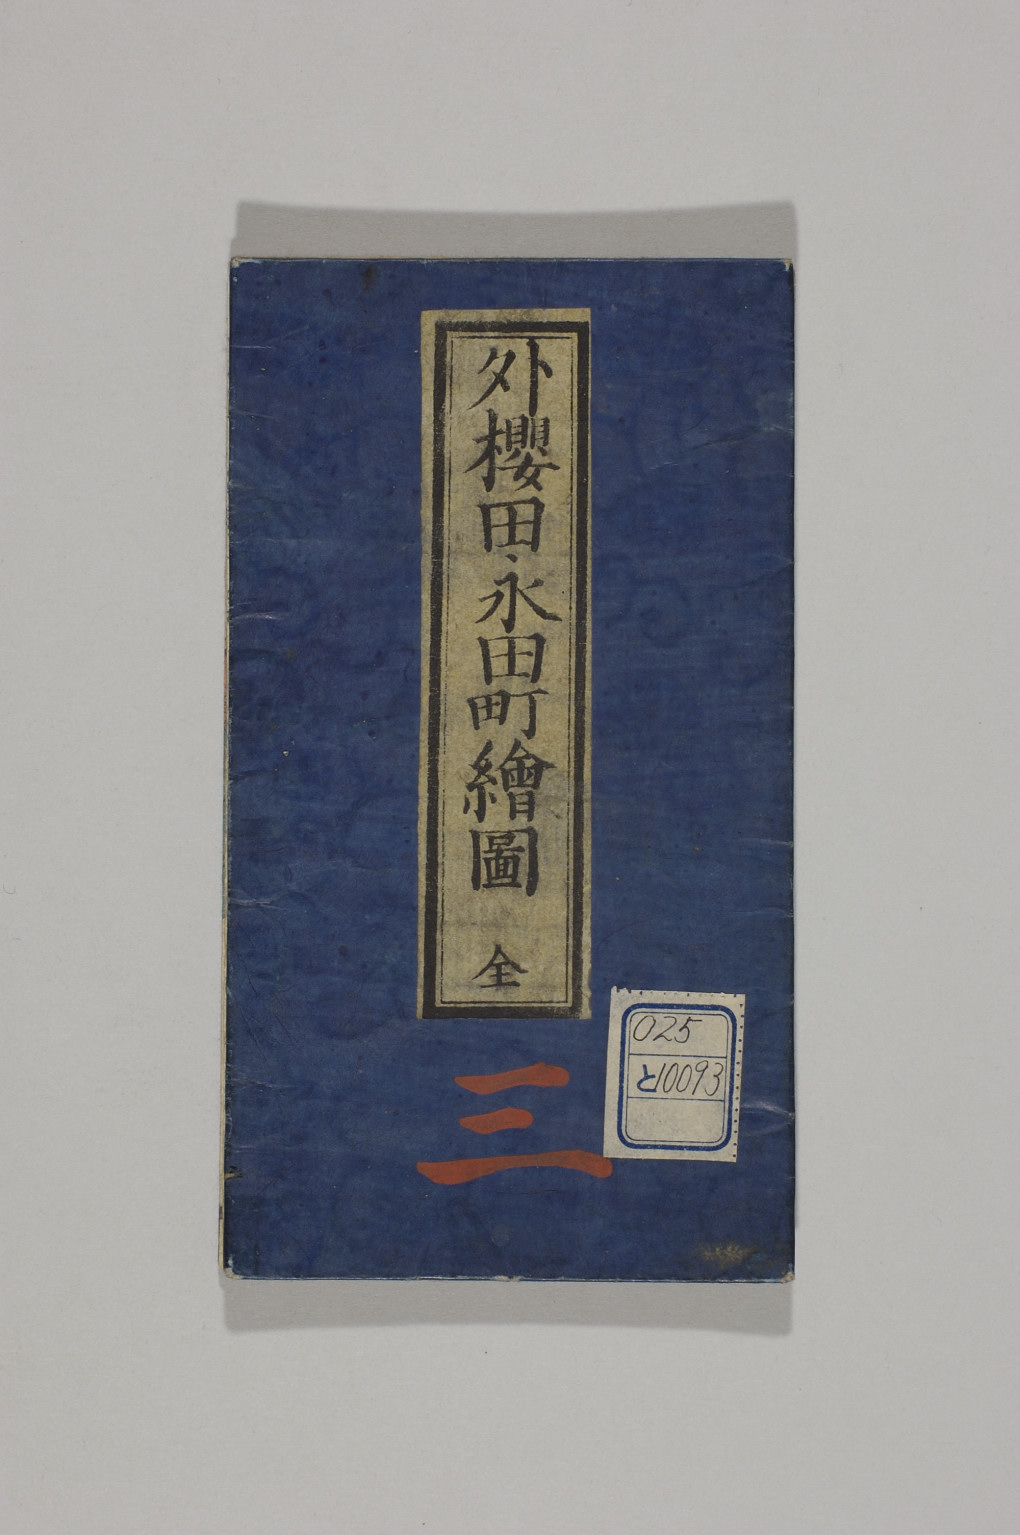 外櫻田永田町繪圖 全
三
025
と10093